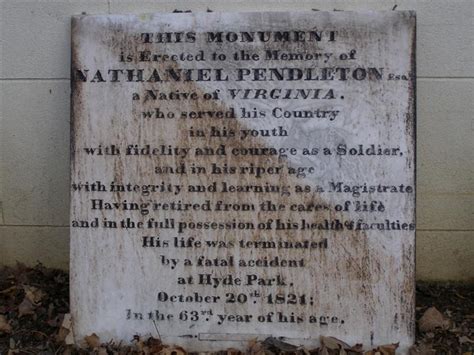 THIS MONUMENT
is Erected to the Memory of
NATHANIEL PENDLETON Esqr.
a Native of VIRGINIA.
who served his Country
in his youth
with fidelity and courage as a Soldier,
and in his riper age
with integrity and learning as a Magistrate
Having retired from the cares of life
and in the full possession of his health & faculties
His life was terminated
by a fatal accident
at Hyde Park.
October 20th. 1821:
In the 63rd. year of his age.